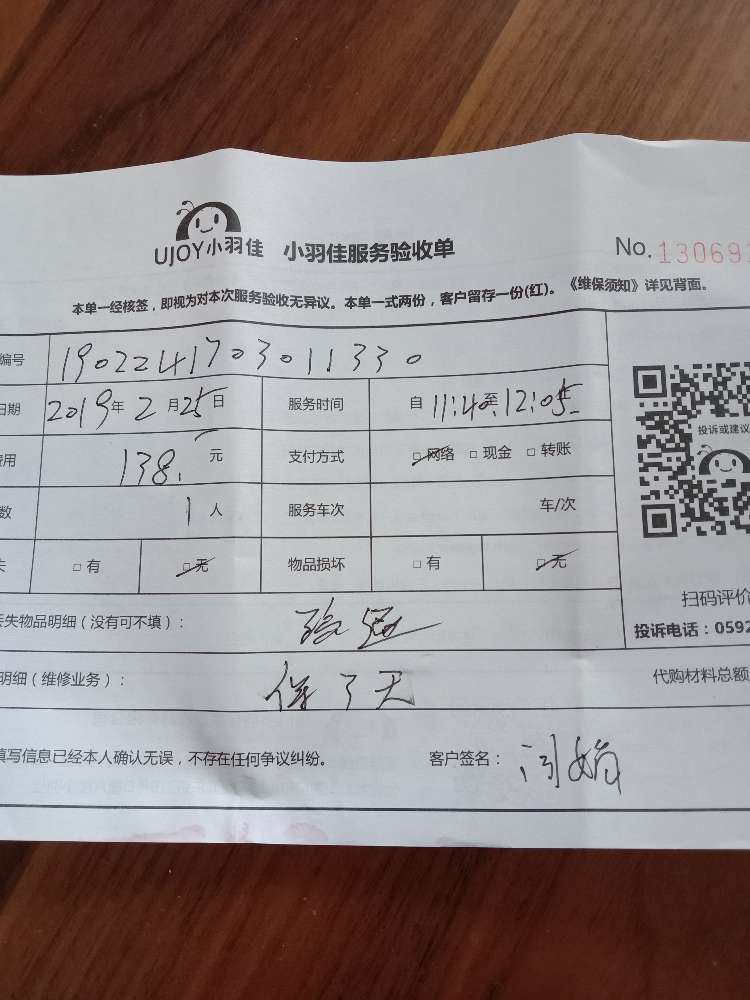 UJOY小羽佳 小羽佳服务验收单 No. 13069
本单一经核签，即视为对本次服务验收无异议。本单一式两份，客户留存一份(红)。《维保须知》详见背面。
编号 1902241703011330
日期 2019年2月25日 服务时间 自11:40至12:05
费用 138.元 支付方式 □网络 □现金 □转账
投诉或建议
数 1人 服务车次 车/次
失 □有 □无 物品损坏 □有 □无
扫码评价
丢失物品明细（没有可不填）：
投诉电话：0592
明细（维修业务）： 保了天 代购材料总额
填写信息已经本人确认无误，不存在任何争议纠纷。 客户签名：